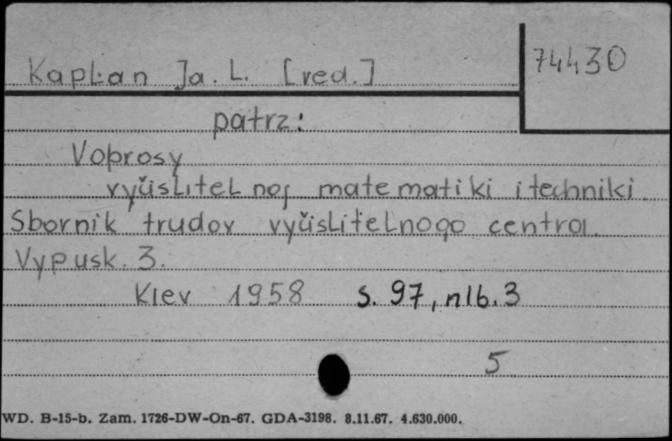 Kaplan Ja. L. [red.]
74430
patrz:
Voprosy
vyčislitelnoj matematiki i techniki
Sbornik trudov vyčislitelnogo centra.
Vypusk. 3.
Kiev 1958 s. 97, nlb. 3
5
WD. B-15-b. Zam. 1726-DW-On-67. GDA-3198. 8.11.67. 4.630.000.